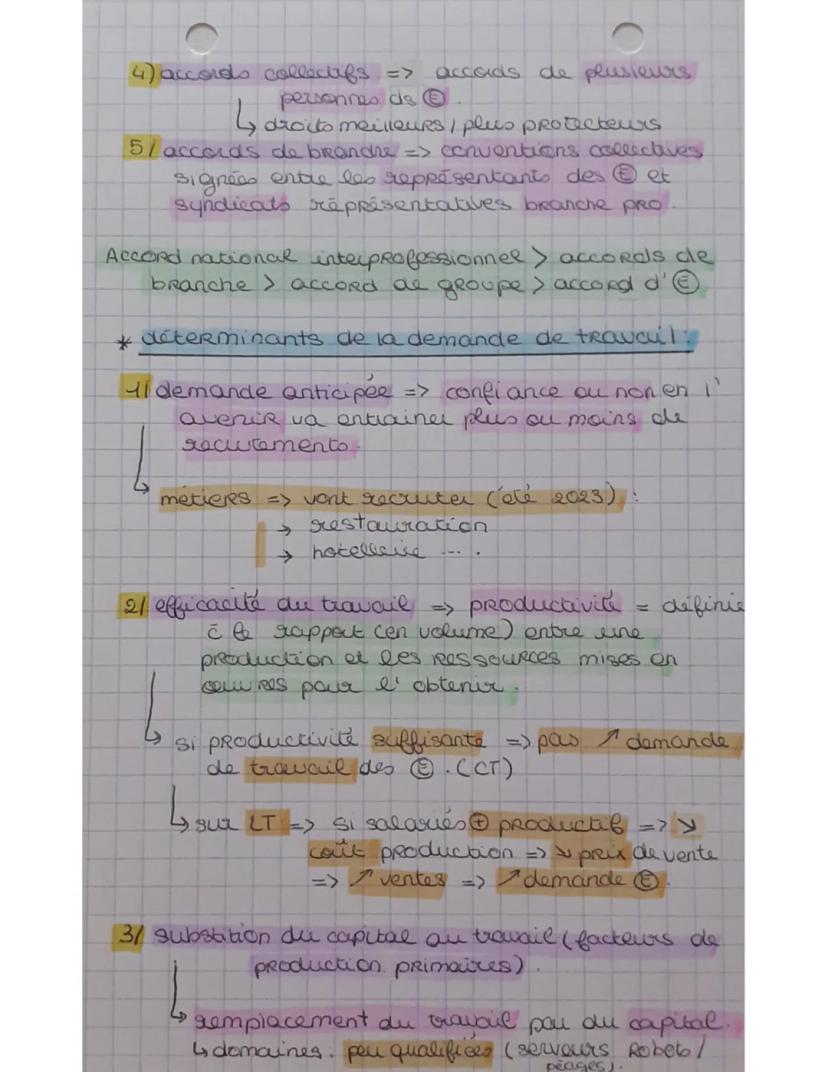 4) accords collectifs => accords de plusieurs
personnes ds Ⓔ.
↳ droits meilleurs / plus protecteurs
5/ accords de branche => conventions collectives
signées entre les représentants des Ⓔ et
syndicats représentatives branche pro.
Accord national interprofessionnel > accords de
branche > accord de groupe > accord d'Ⓔ
* déterminants de la demande de travail :
1/ demande anticipée => confiance ou non en l'
avenir va entrainer plus ou moins de
recrutements.
↳ métiers => vont recruter (été 2023) :
→ restauration
→ hotellerie ... .
2/ efficacité du travail => productivité = définie
c̄ le rapport (en volume) entre une
production et les ressources mises en
oeuvres pour l'obtenir.
↳ si productivité suffisante => pas ↗ demande
de travail des Ⓔ. (CT)
↳ sur LT => si salariés ⊕ productif => ↘
coût production => ↘ prix de vente
=> ↗ ventes => ↗ demande Ⓔ.
3/ substition du capital au travail (facteurs de
production primaires).
↳ remplacement du travail pau du capital.
↳ domaines : peu qualifiées (serveurs Robots /
péages).